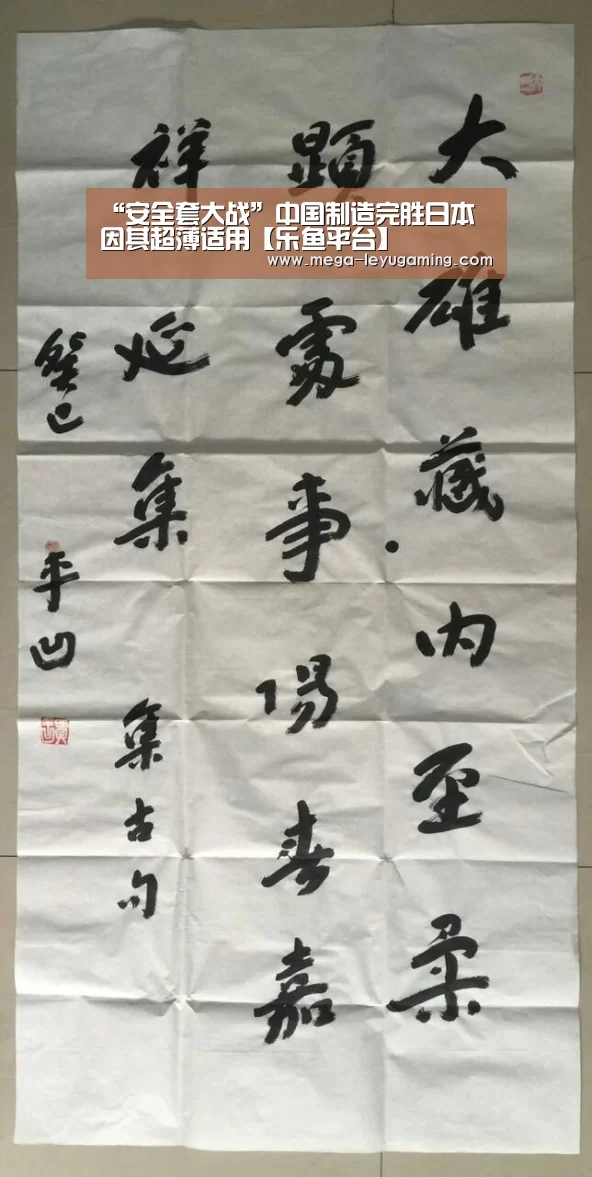 “安全套大战”中国制造完胜日本
因其超薄适用【乐鱼平台】
www.mega-leyugaming.com
大雄藏内至柔
顕處事陽春嘉
祥延集 集古句
癸巳 平凹